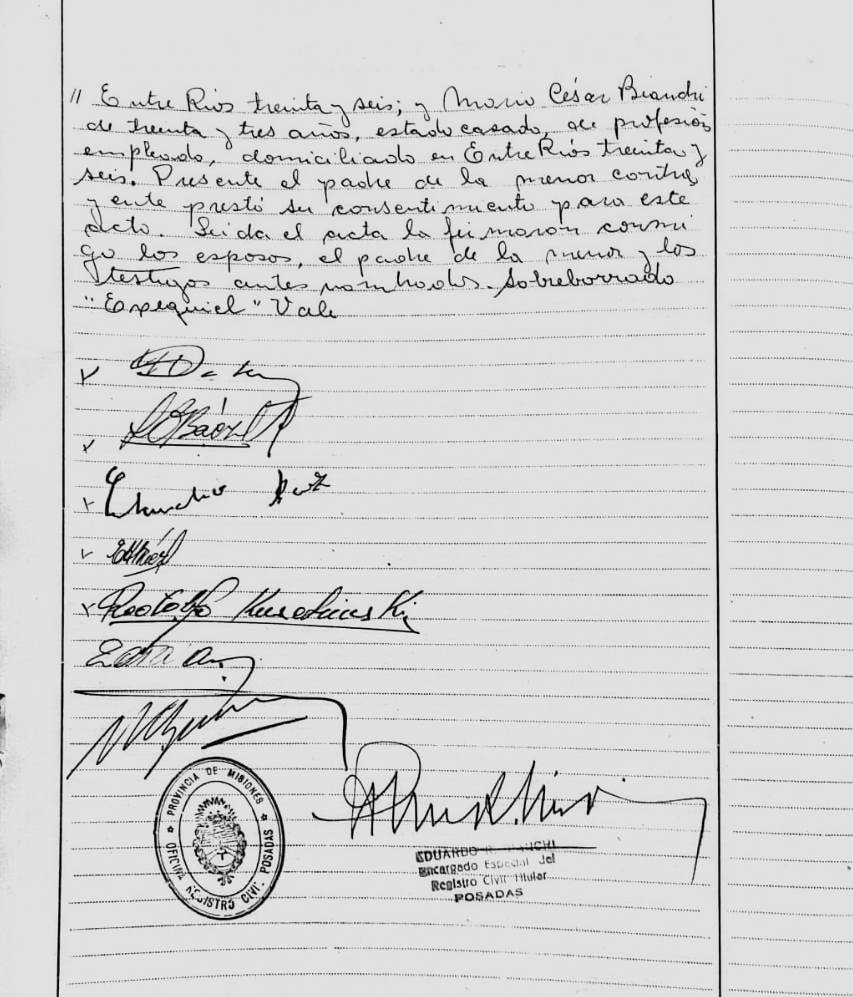 // Entre Rios treinta y seis; y Mario César Bianchi
de treinta y tres años, estado casado, de profesión
empleado, domiciliado en Entre Ríos treinta y
seis. Presente el padre de la menor contra
yente prestó su consentimiento para este
acto. Leida el acta la firmaron conmi
go los esposos, el padre de la menor y los
testigos antes nombrados. Sobreborrado
"Exequiel" Vale
Rodolfo
PROVINCIA DE MISIONES
OFICINA REGISTRO CIVIL POSADAS
EDUARDO
Encargado Especial del
Registro Civil Titular
POSADAS